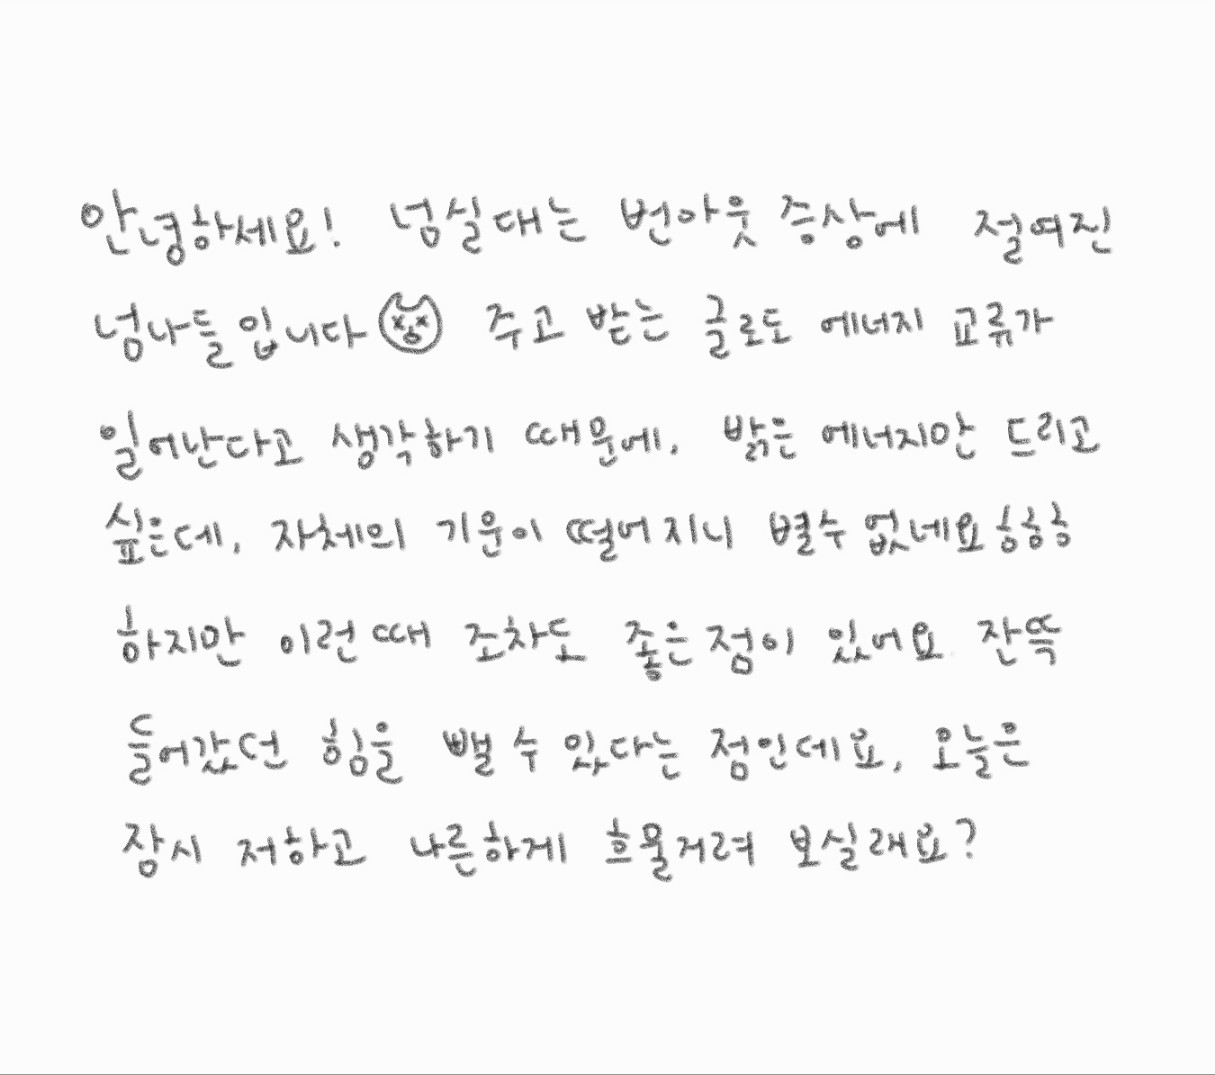 안녕하세요! 넘실대는 번아웃 증상에 절여진
넘나들입니다 주고 받는 글로도 에너지 교류가
일어난다고 생각하기 때문에, 밝은 에너지만 드리고
싶은데, 자체의 기운이 떨어지니 별수 없네요 흐흐흐
하지만 이런때 조차도 좋은 점이 있어요. 잔뜩
들어갔던 힘을 뺄 수 있다는 점인데요, 오늘은
잠시 저하고 나른하게 흐물거려 보실래요?